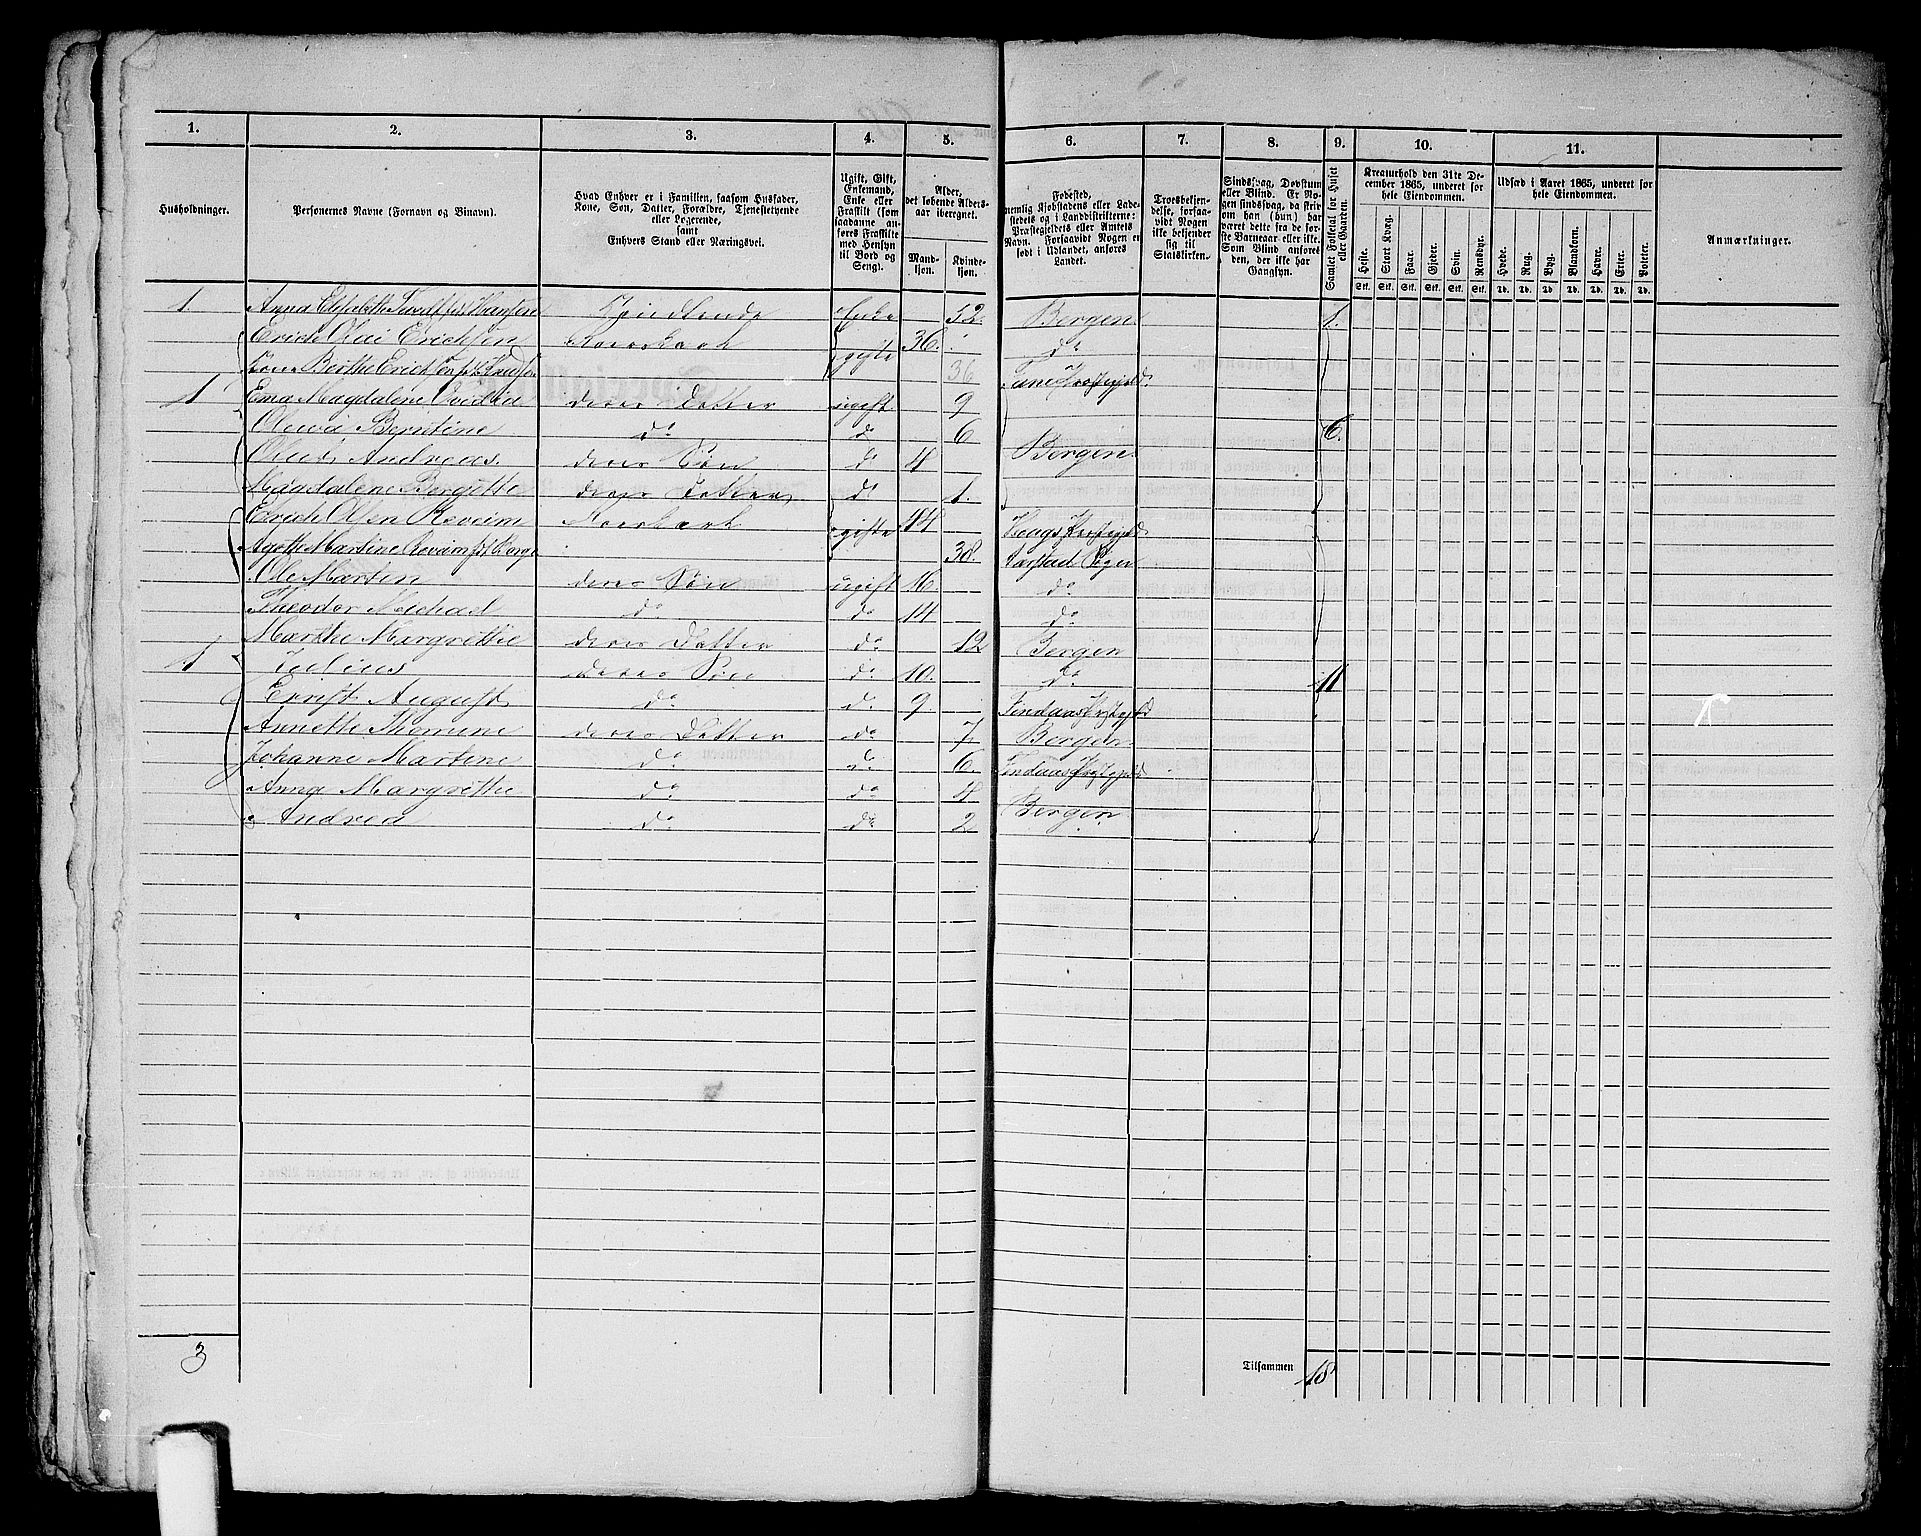 1. 2. 3. 4. 5. 6. 7. 8. 9. 10. 11.
Husholdninger.
Personernes Navne (Fornavn og Binavn).
Hvad Enhver er i Familien, saasom Husfader, Kone, Søn, Datter, Forældre, Tjenestetyende eller Logerende, samt Enhvers Stand eller Næringsvei.
Ugift, Gift, Enkemand, Enke eller Fraskilt (som saadanne anføres Fraskilte med Hensyn til Bord og Seng).
Alder, det løbende Aldersaar iberegnet.
Mandkjøn. Kvindekjøn.
Fødested, nemlig Kjøbstadens eller Ladestedets og i Landdistrikterne: Præstegjeldets eller Amtets Navn. Forsaavidt Nogen er født i Udlandet, anføres Landet.
Troesbekjendelse, forsaavidt Nogen ikke bekjender sig til Statskirken.
Sindssvag, Døvstum eller Blind. Er Nogen sindssvag, da skriv om han (hun) har været dette fra de første Barneaar eller ikke. Som Blind anføres den, der ikke har Gangsyn.
Samlet Folketal for Huset eller Gaarden.
Kreaturhold den 31te December 1865, underet for hele Eiendommen.
Heste. Stort Kvæg. Faar. Gjeder. Svin. Rensdyr.
Stk. Stk. Stk. Stk. Stk. Stk.
Udsæd i Aaret 1865, underet for hele Eiendommen.
Hvede. Rug. Byg. Blandkorn. Havre. Erter. Poteter.
Td. Td. Td. Td. Td. Td. Td.
Anmærkninger.
1. Anna Elisabeth Hansen Enke 52. Bergen 1.
Erich Olai Erichsen gifte 36. do
Kone Berthe Erichsen 36
1 Ema Magdalene deres Datter ugift 9
Olava Berntine do d 6 6.
Oluf Andreas deres Søn d 4 Bergen
Magdalene Bergitte deres Datter d 1.
Erich Olsen Reveim gifte 44 Haugs Præstegjeld
Martine Reveim 38.
Ole Martin deres Søn ugift 16. do
Theodor Michael do do 14 do
Marthe Margrethe deres Datter do 12 Bergen
1 Julius deres Søn do 10. do 11
Ernst August do do 9 Lindaas Præstegjeld
Annette Thomine deres Datter do 7 Bergen
Johanne Martine do do 6. Lindaas Præstegjeld
Anna Margrethe do do 4
Andrea do do 2 Bergen
3 Tilsammen 18